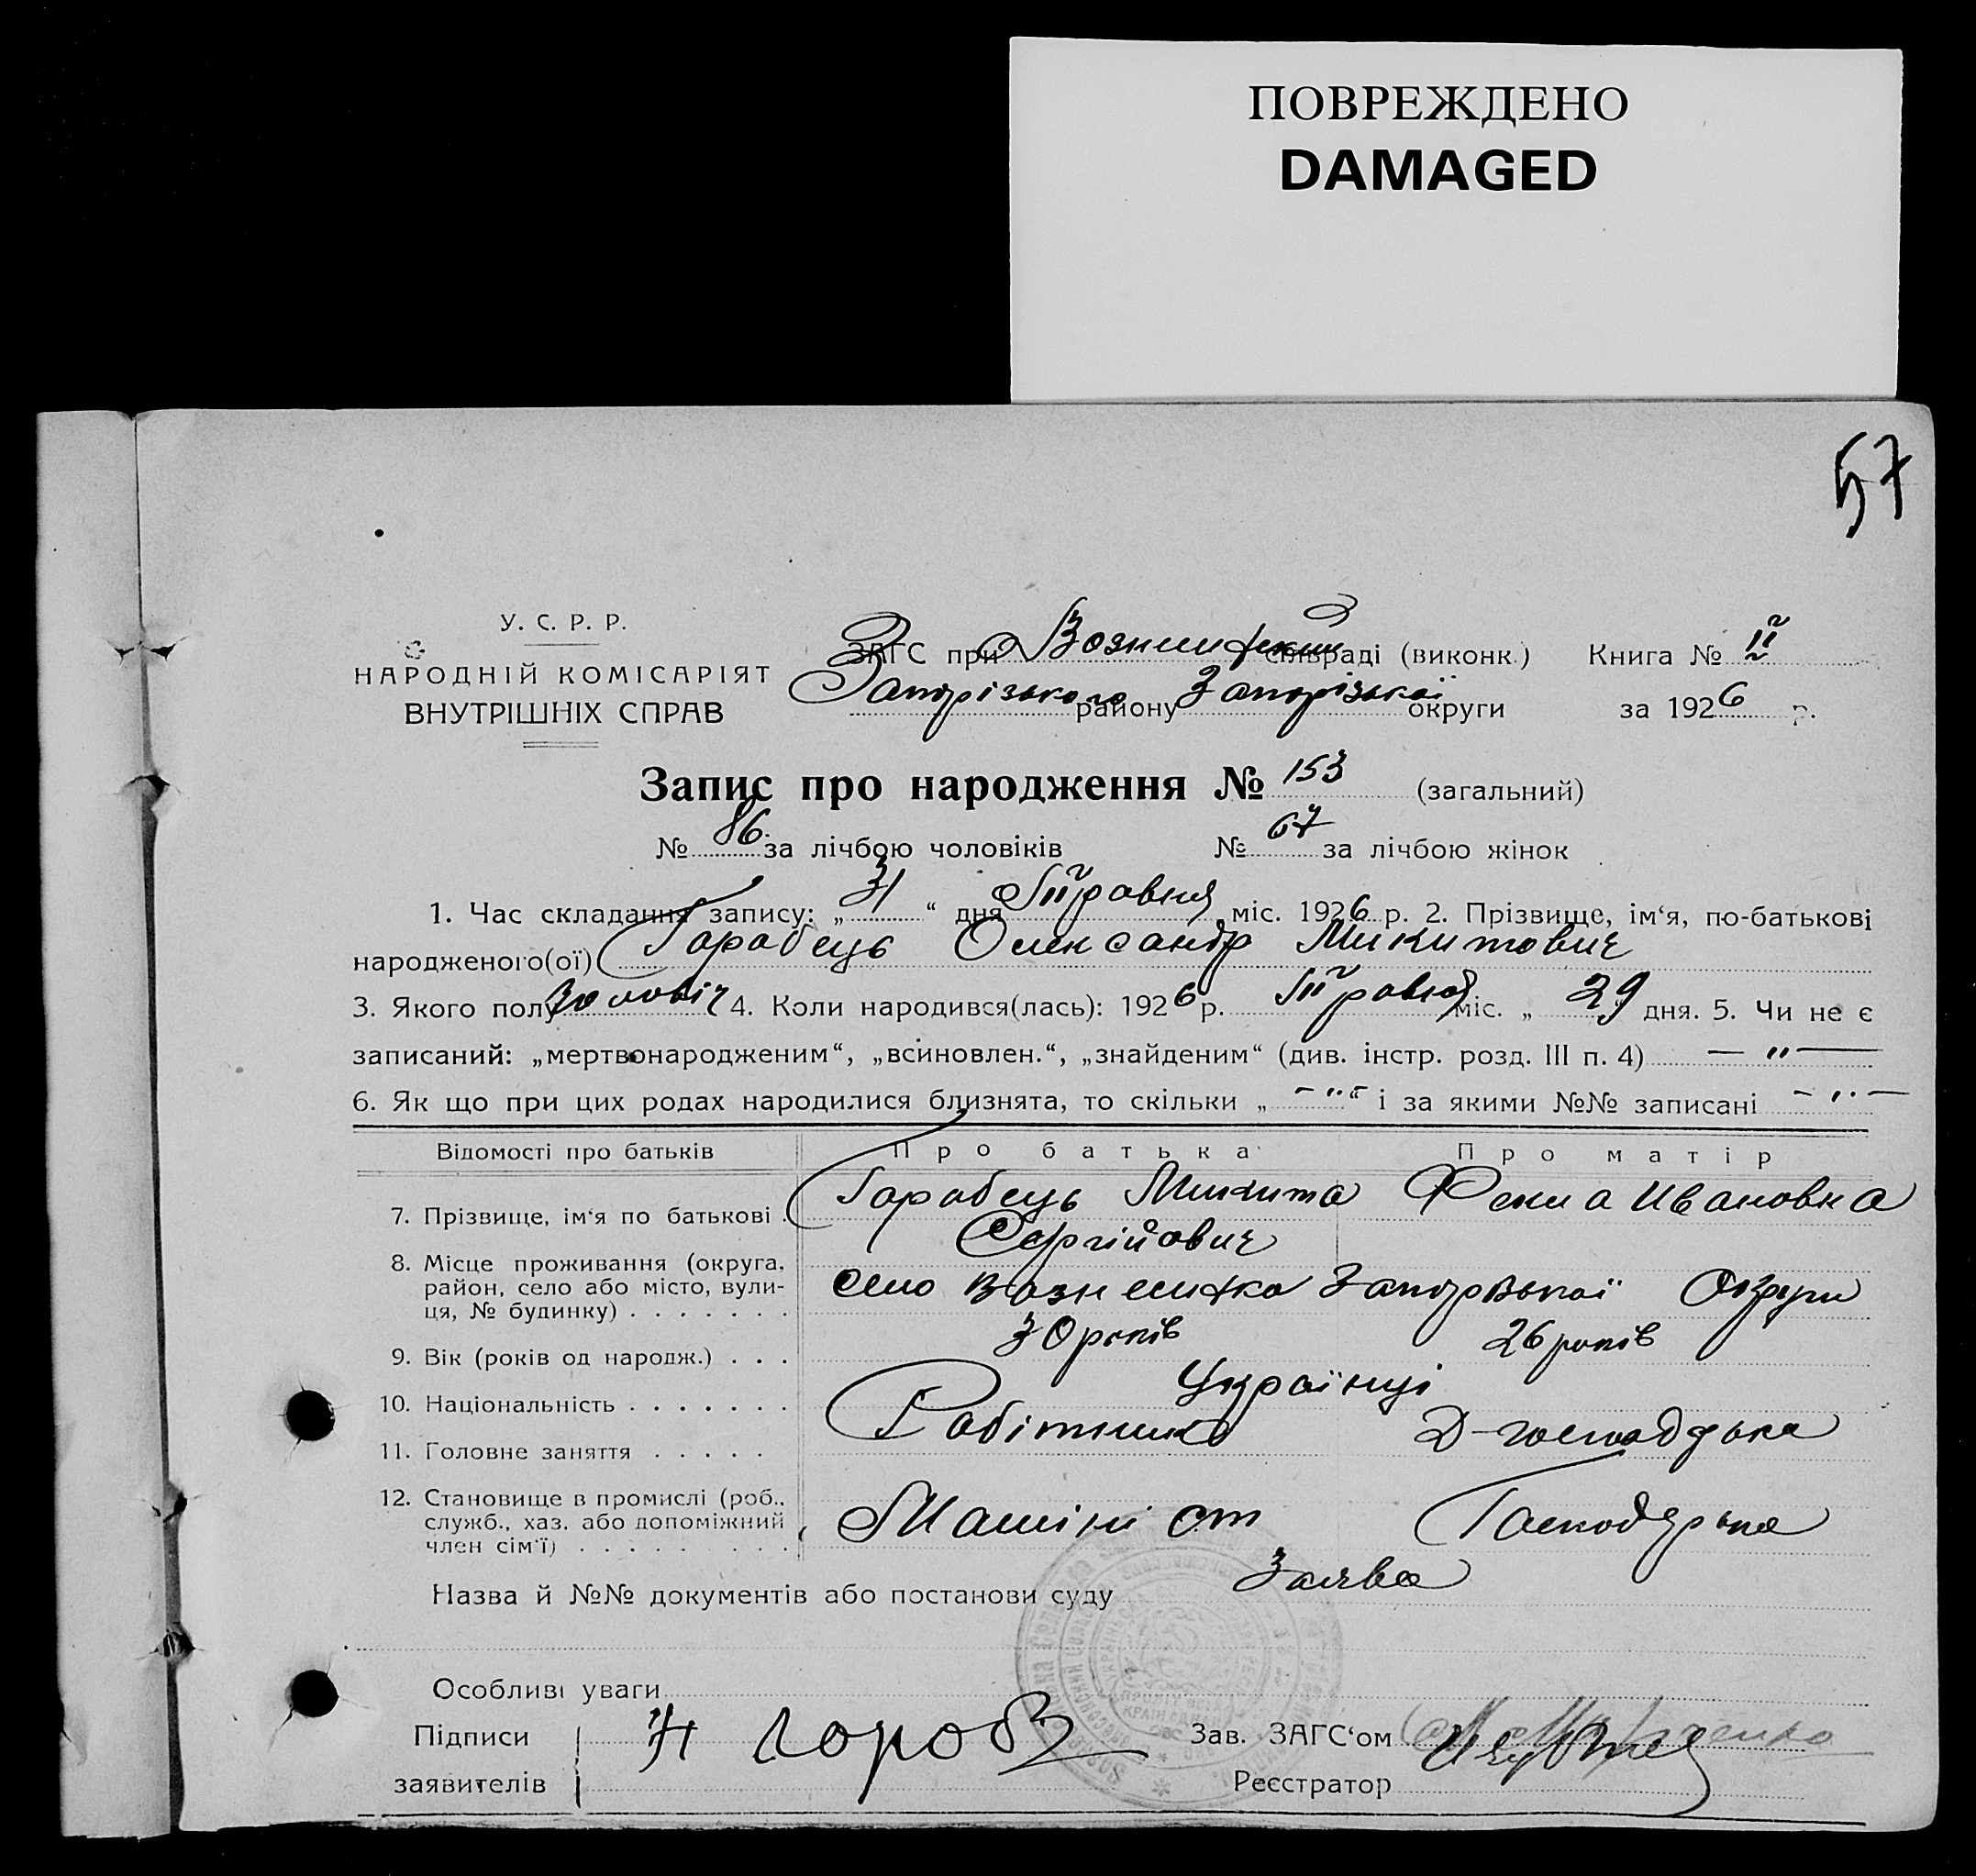 ПОВРЕЖДЕНО
DAMAGED
57
У. С. Р. Р.
НАРОДНІЙ КОМІСАРІЯТ
ВНУТРІШНІХ СПРАВ
ЗАГС при Вознишській сільраді (виконк.) Книга № II
Запорізького району Запорізької округи за 1926 р.
Запис про народження № 153 (загальний)
№ 86 за лічбою чоловіків № 67 за лічбою жінок
1. Час складання запису: „31“ дня Травня міс. 1926 р. 2. Прізвище, ім‘я, по-батькові
народженого(ої) Горобець Олександр Микитович
3. Якого полу чоловіч 4. Коли народився(лась): 1926 р. Травня міс. „29“ дня. 5. Чи не є
записаний: „мертвонародженим“, „всиновлен.“, „знайденим“ (див. інстр. розд. III п. 4) — " —
6. Як що при цих родах народилися близнята, то скільки „ - " - “ і за якими №№ записані - " -
Відомості про батьків Про батька Про матір
7. Прізвище, ім‘я по батькові . Горобець Микита Сергійович Фекла Ивановна
8. Місце проживання (округа, район, село або місто, вулиця, № будинку) . . . . . . . село Вознешика Запорізької Округи
9. Вік (років од народж.) . . . 30 років 26 років
10. Національність . . . . . . . Українці
11. Головне заняття . . . . . Робітник Д-господарька
12. Становище в промислі (роб., служб., хаз. або допоміжний член сім‘ї) . . . . . . . . . Машініст Господарька
Назва й №№ документів або постанови суду Заява
Особливі уваги
Підписи
заявителів
Н Горобец
Зав. ЗАГС‘ом
Реєстратор